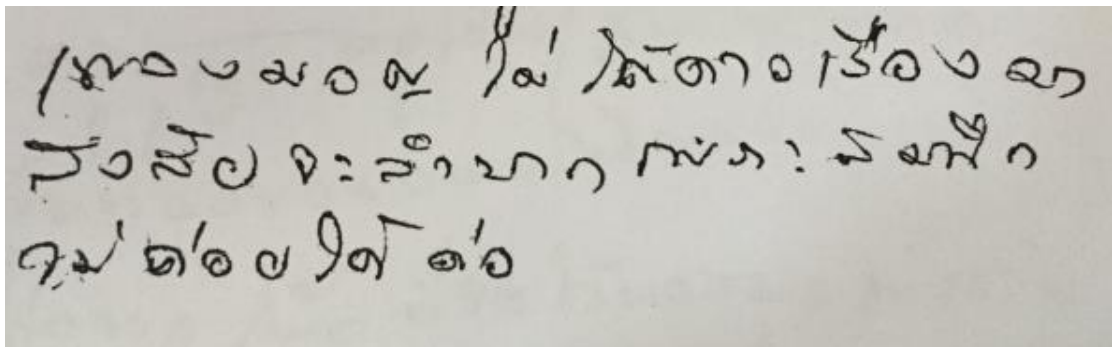 เพลงมอญ ไม่ได้ดาวเรืองมา
สงสัยจะลำบาก เพราะ
ไม่ค่อยได้ ต่อ